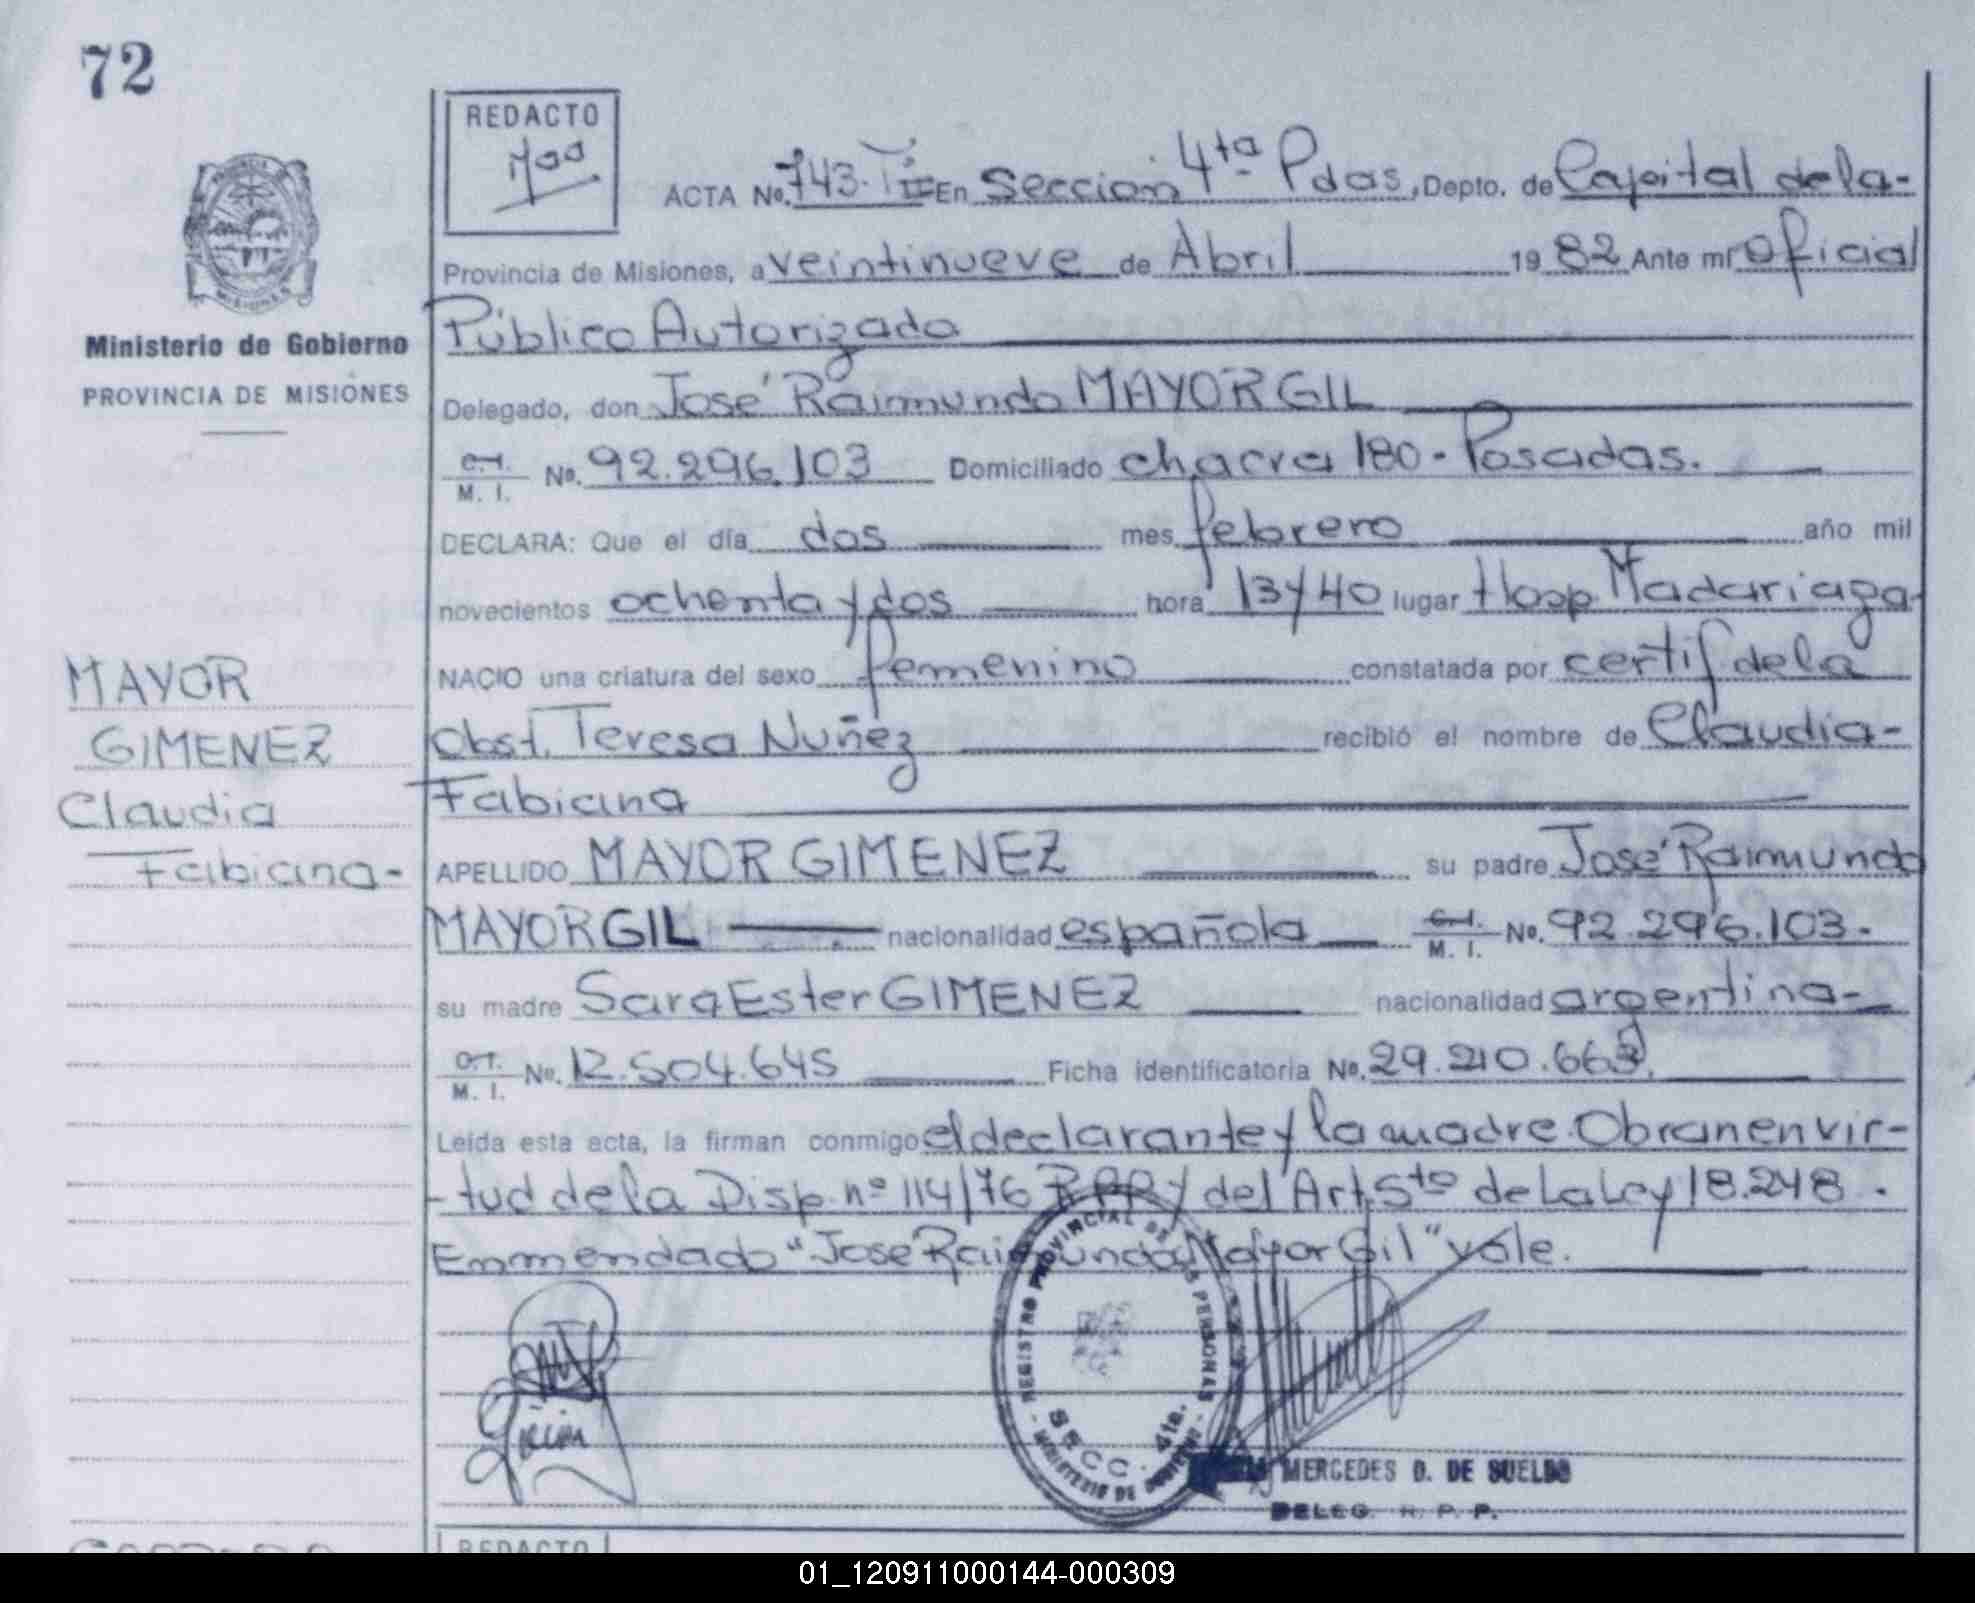 72
REDACTO
ACTA No. 743. T II En Sección 4ta Pdas, Depto. de Capital de la-
Provincia de Misiones, a veintinueve de Abril 1982 Ante mí oficial
Público Autorizado
Ministerio de Gobierno
PROVINCIA DE MISIONES
Delegado, don José Raimundo MAYOR GIL
C.I. M. I. No. 92.296.103 Domiciliado chacra 180 - Posadas.
DECLARA: Que el día dos mes febrero año mil
novecientos ochenta y dos hora 13 y 40 lugar Hosp Madariaga
NACIO una criatura del sexo femenino constatada por certif de la
Obst. Teresa Nuñez recibió el nombre de Claudia-
Fabiana
MAYOR
GIMENEZ
Claudia
Fabiana-
APELLIDO MAYOR GIMENEZ su padre José Raimundo
MAYOR GIL nacionalidad española C.I. M. I. No. 92.296.103.
su madre Sara Ester GIMENEZ nacionalidad argentina-
C.I. M. I. No. 12.504.645 Ficha identificatoria No. 29.210.663.
Leída esta acta, la firman conmigo el declarante y la madre. Obran en vir-
-tud de la Disp. nº 114/76 RPP y del Art. 5to de La Ley 18.248.
Enmendado "Jose Raimundo Mayor Gil" vale.
REGISTRO PROVINCIAL DE LAS PERSONAS
SECC. 4ta.
MINISTERIO DE GOBIERNO
MERCEDES D. DE SUELDO
DELEG. R. P. P.
REDACTO
01_120911000144-000309